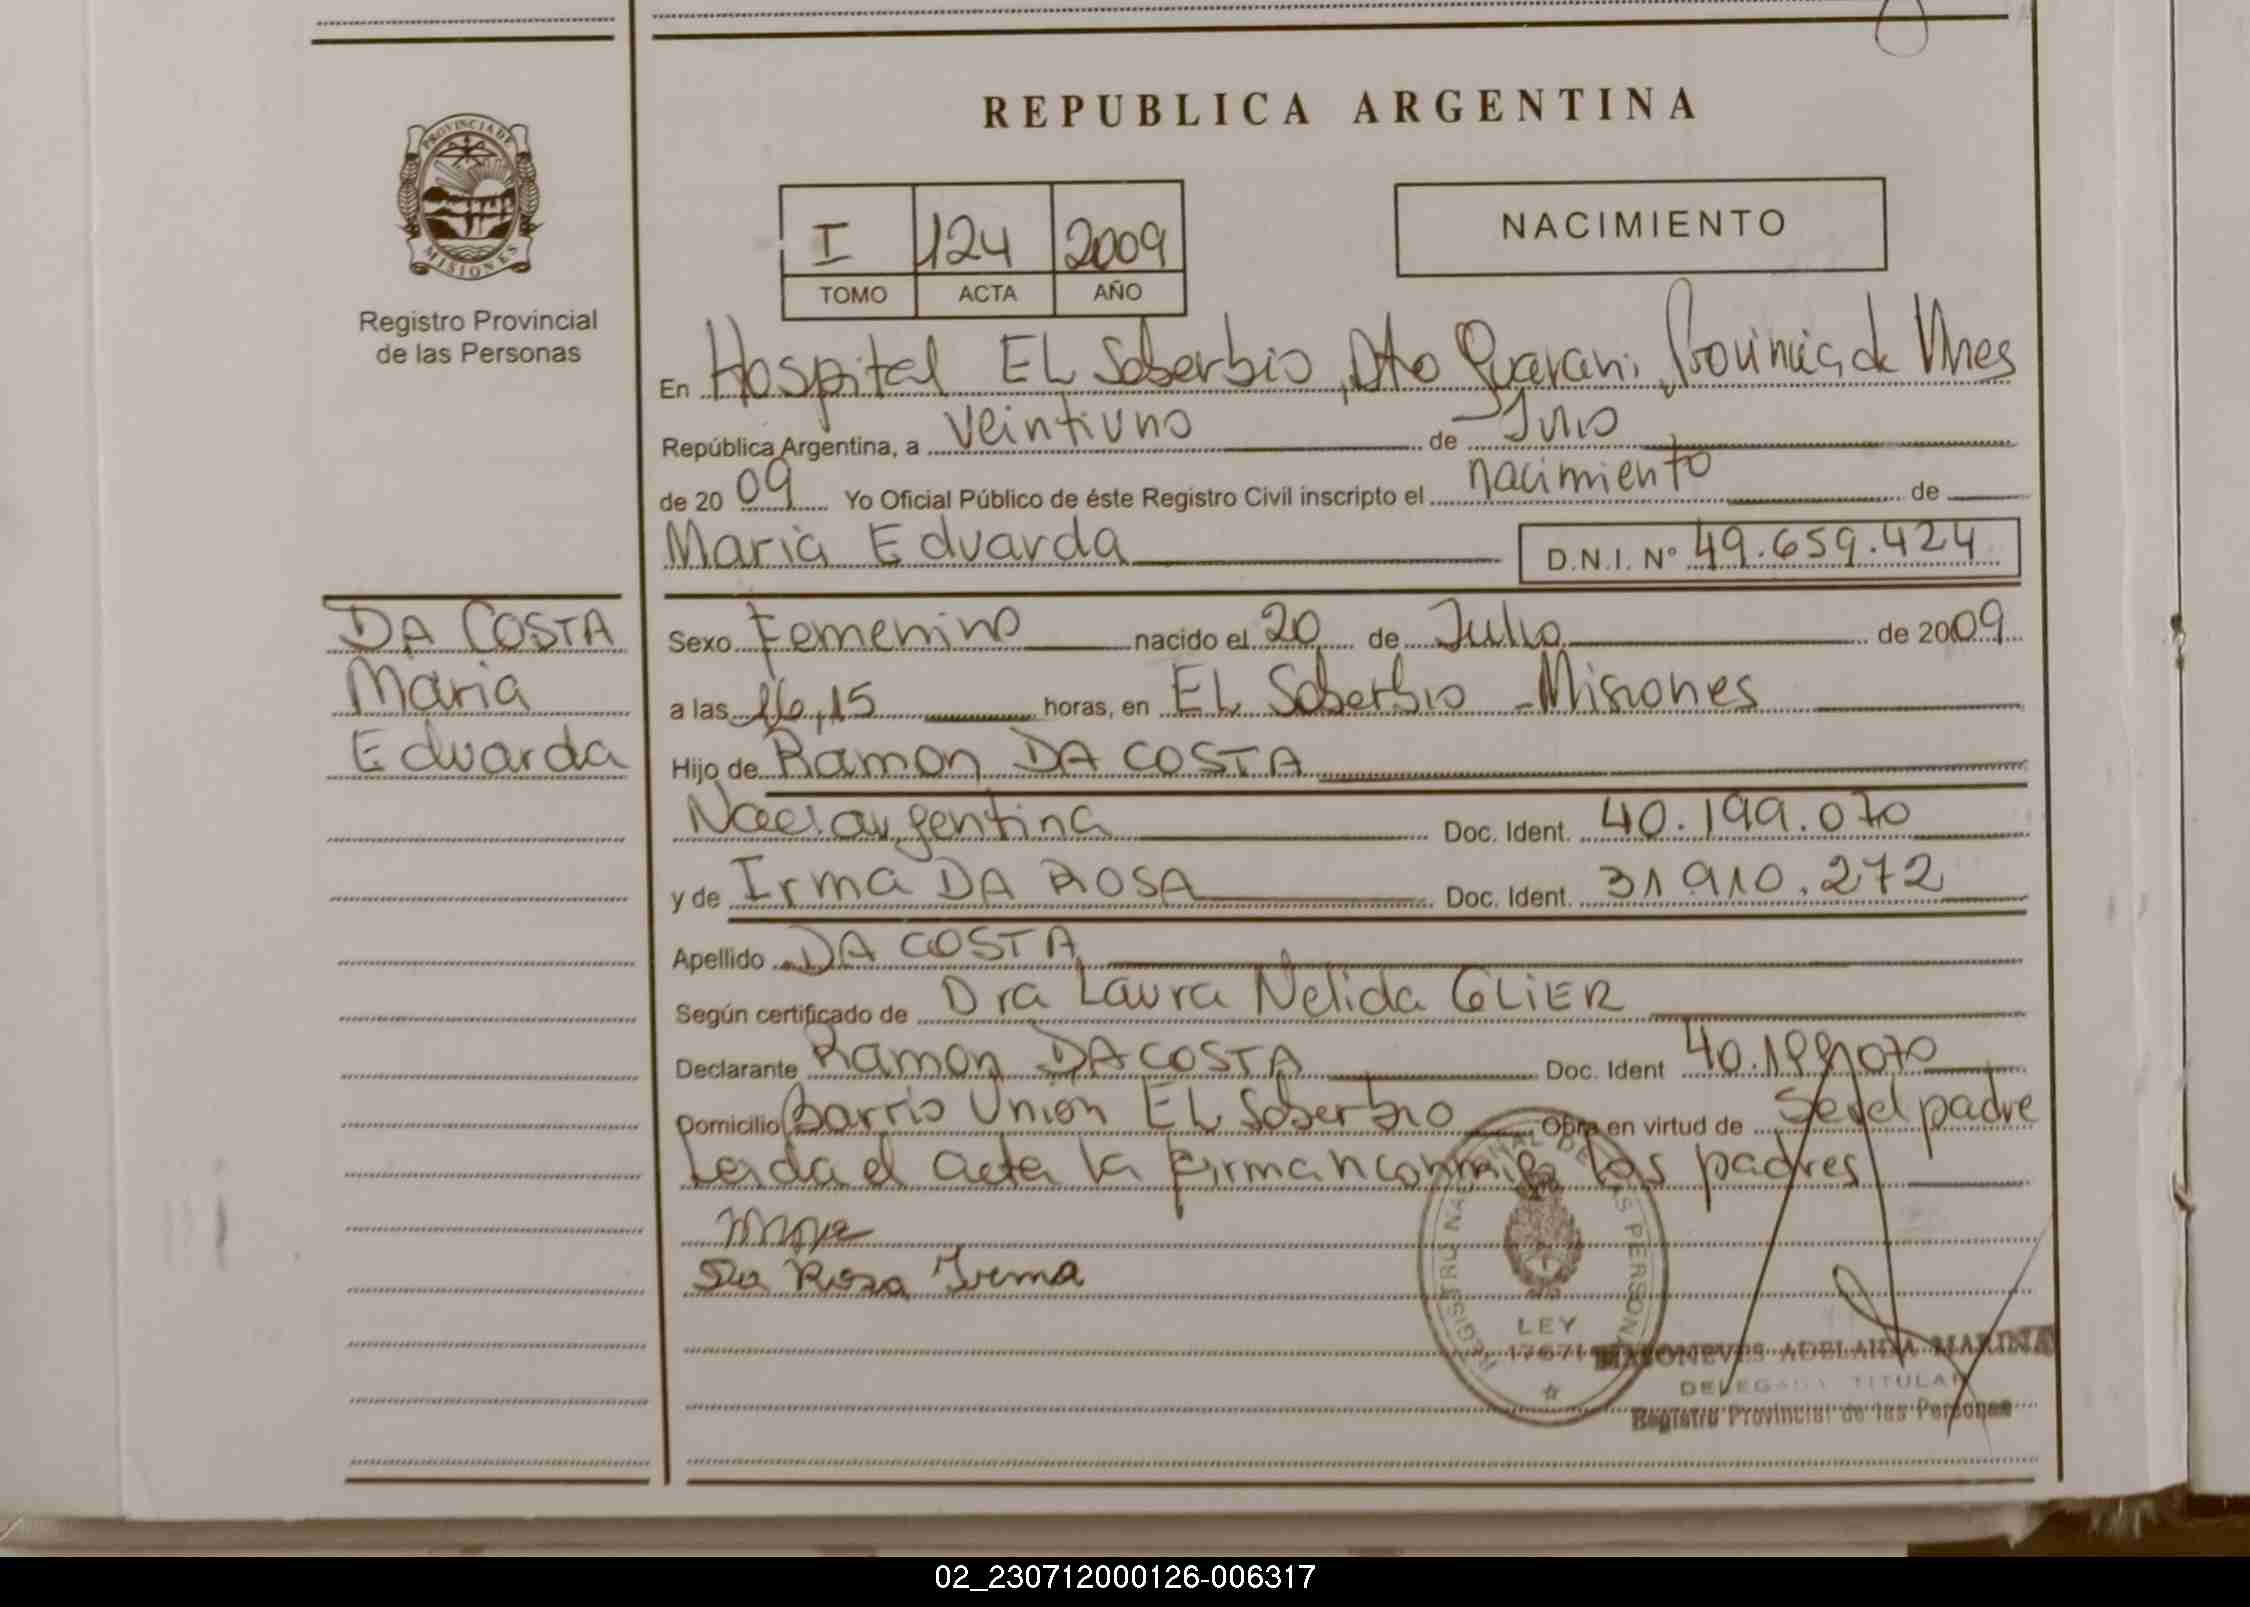 REPUBLICA ARGENTINA
PROVINCIA DE
MISIONES
Registro Provincial
de las Personas
I 124 2009
TOMO ACTA AÑO
NACIMIENTO
En Hospital EL Soberbio, Dto Guarani, Provincia de Mnes
República Argentina, a veintiuno de Julio
de 2009 Yo Oficial Público de éste Registro Civil inscripto el nacimiento de
Maria Eduarda D.N.I. Nº 49.659.424
DA COSTA
Maria
Eduarda
Sexo Femenino nacido el 20 de Julio de 2009
a las 16,15 horas, en EL Soberbio - Misiones
Hijo de Ramon DA COSTA
Nac. argentina Doc. Ident. 40.199.070
y de Irma DA ROSA Doc. Ident. 31.910.272
Apellido DA COSTA
Según certificado de Dra Laura Nelida GLIER
Declarante Ramon DA COSTA Doc. Ident 40.199.070
Domicilio Barrio Union EL Soberbio Obra en virtud de Ser el padre
Leida el acta la firman conmigo los padres
Da Rosa Irma
REGISTRO NACIONAL DE LAS PERSONAS
LEY
17671
ADELAIDA MARINA
DELEGADA TITULAR
Registro Provincial de las Personas
02_230712000126-006317